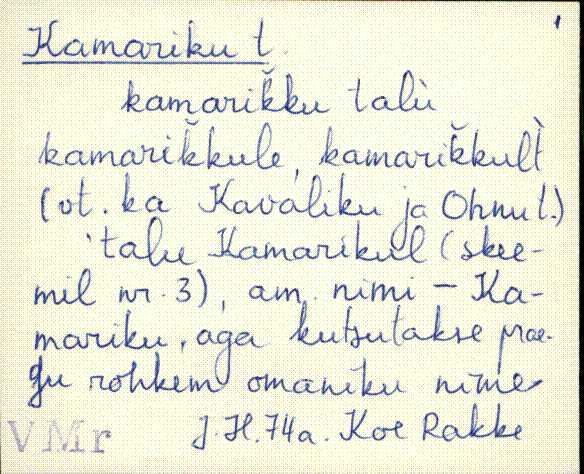 1
Kamariku t.
kamarik̆ku talù
kamarik̆kule, kamarik̆kult̀
(vt. ka Kavaliku ja Ohnu t.)
talu Kamarikul (skee-
mil nr. 3), am. nimi - Ka-
mariku, aga kutsutakse prae-
gu rohkem omaniku nime
J. H. 74 a. Koe Rakke
VMr